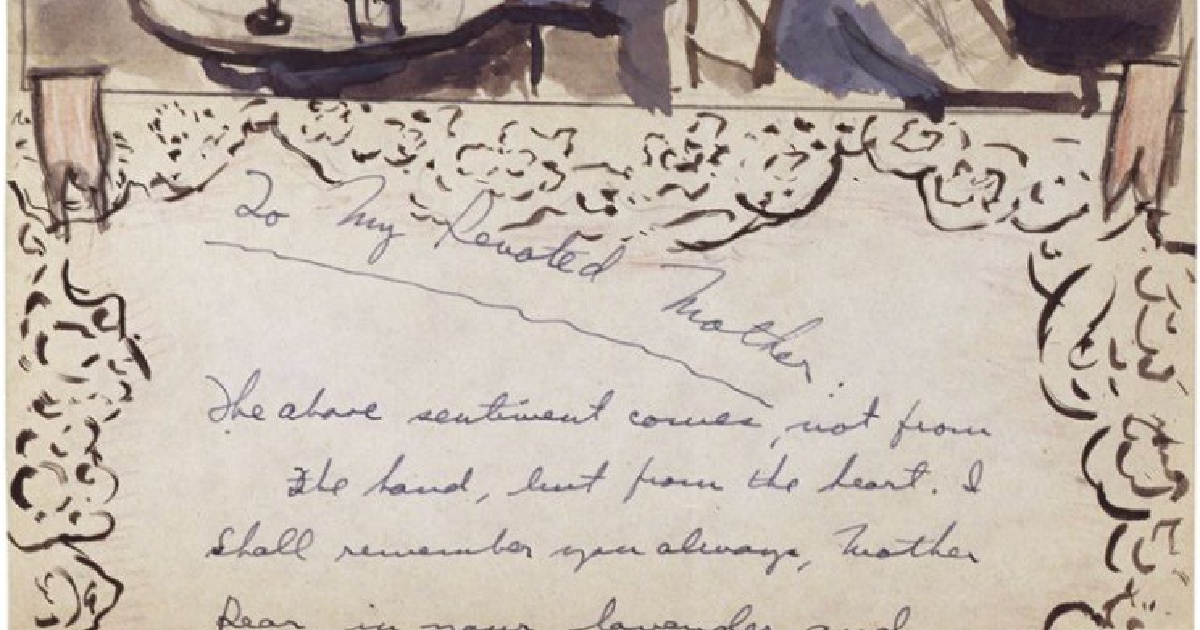 To My Devoted Mother.
The above sentiment comes, not from
the hand, but from the heart. I
shall remember you always, Mother
Dear in your lavender and